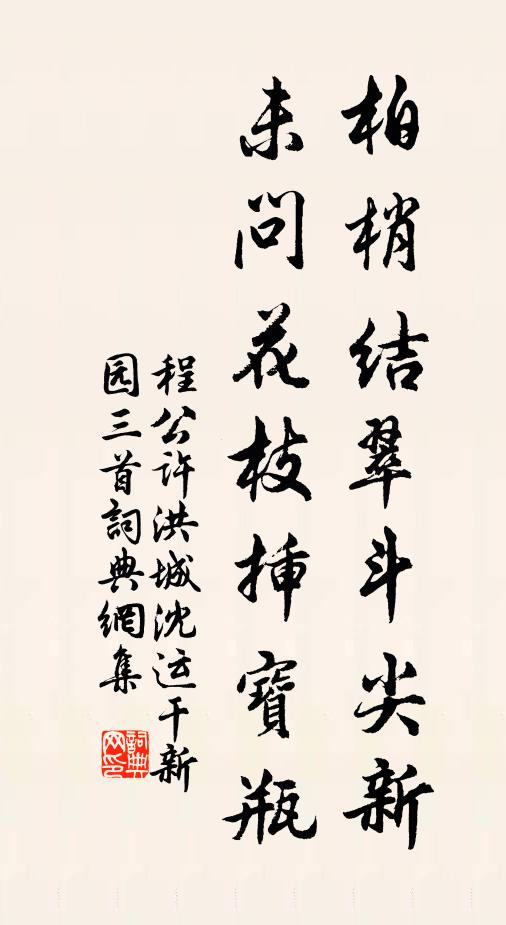 柏梢结翠斗尖新
来问花枝插宝瓶
程公许洪城沈运干新
园三首词典網集
詞典
网印